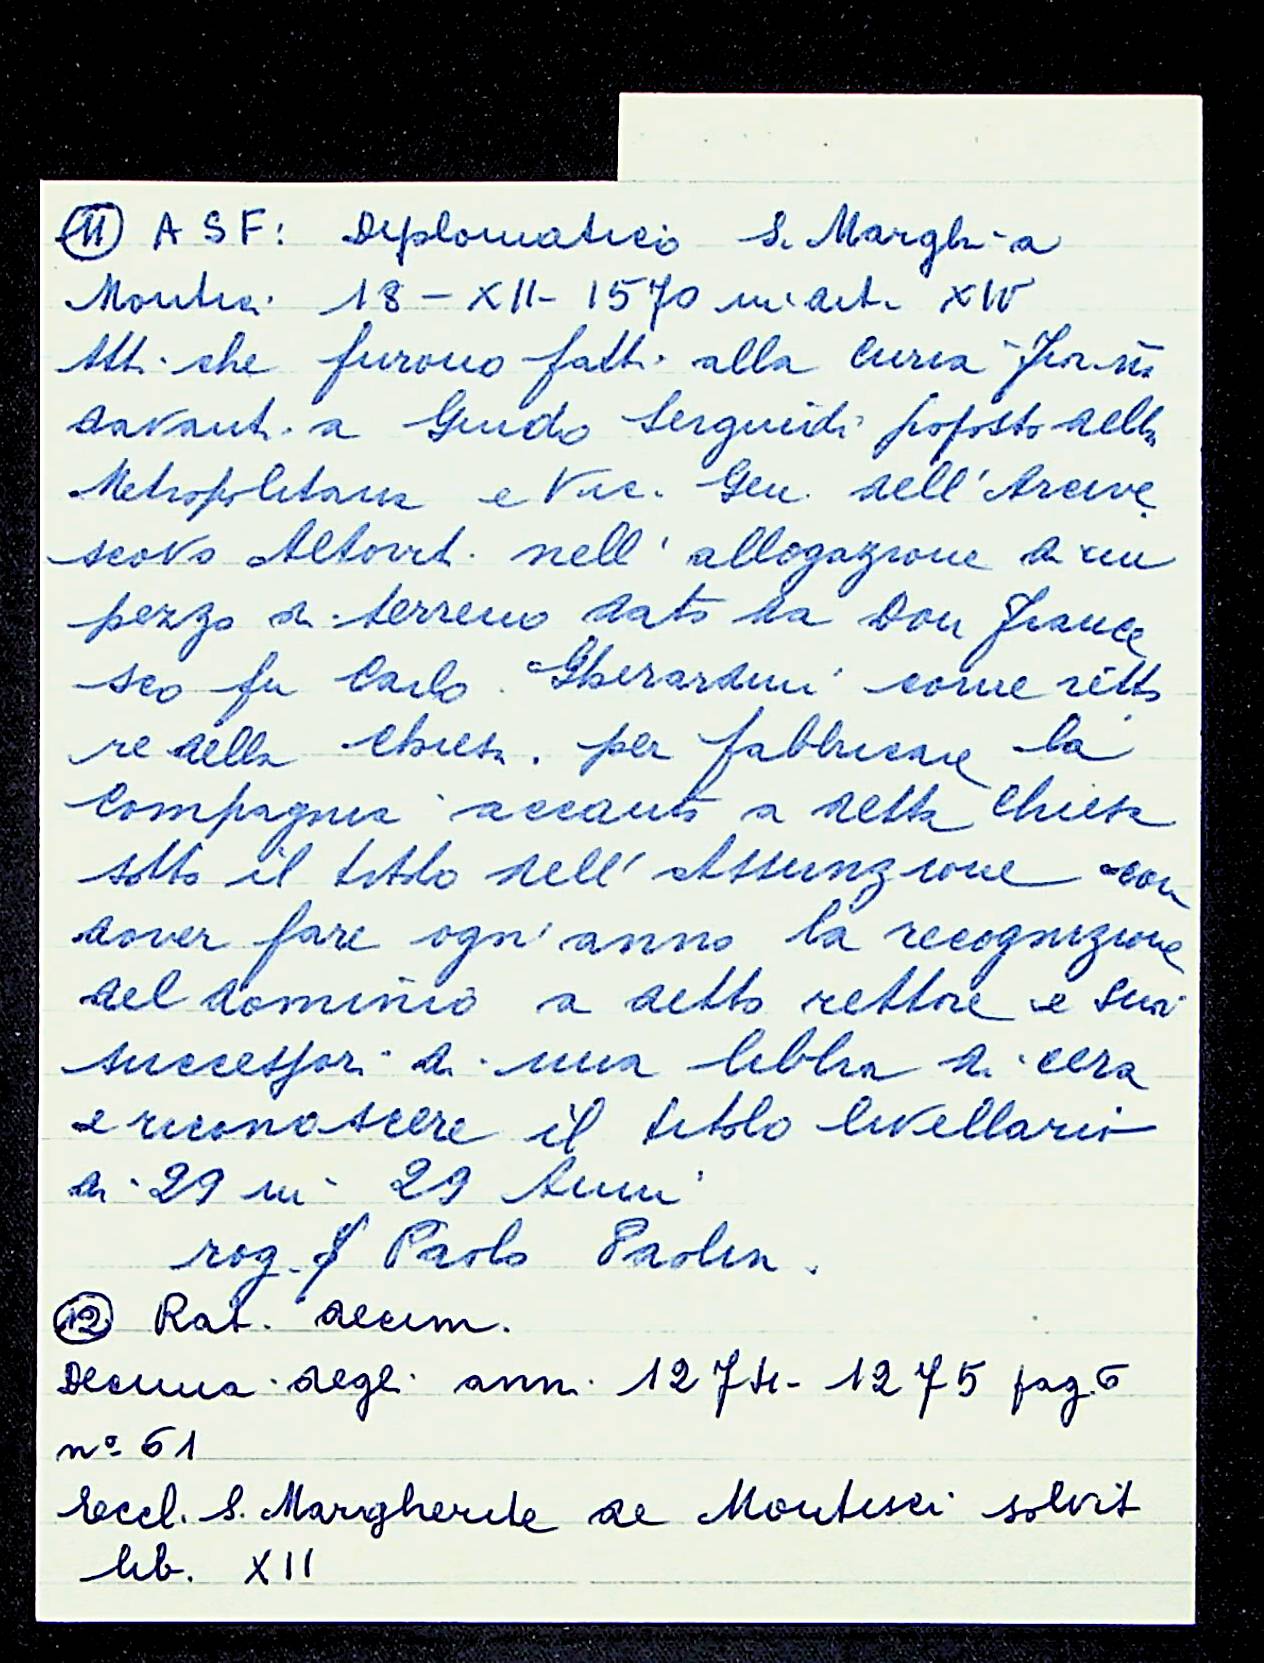 (11) A S F: Diplomatico S. Margh-a
Montici 18 - XII - 1570 indict. XIV
Atti che furono fatti alla curia Fior.na
davanti a Guido Serguidi proposto della
Metropolitana e Vic. Gen. dell'Arcive
scovo Altoviti nell'allogazione di un
pezzo di terreno dato da Don France
sco fu Carlo Gherardini come retto
re della Chiesa. per fabbricare la
Compagnia accanto a detta Chiesa
sotto il titolo dell'Assunzione con
dover fare ogn'anno la recognizione
del dominio a detto rettore e suoi
successori di una libbra di cera
e riconoscere il titolo livellario
di 29 in 29 Anni
rog. S Paolo Paolin.
(12) Rat. decim.
Decima degli anni 1274 - 1275 pag. 6
nº 61
Eccl. S. Margherite de Montisci solvit
lib. XII